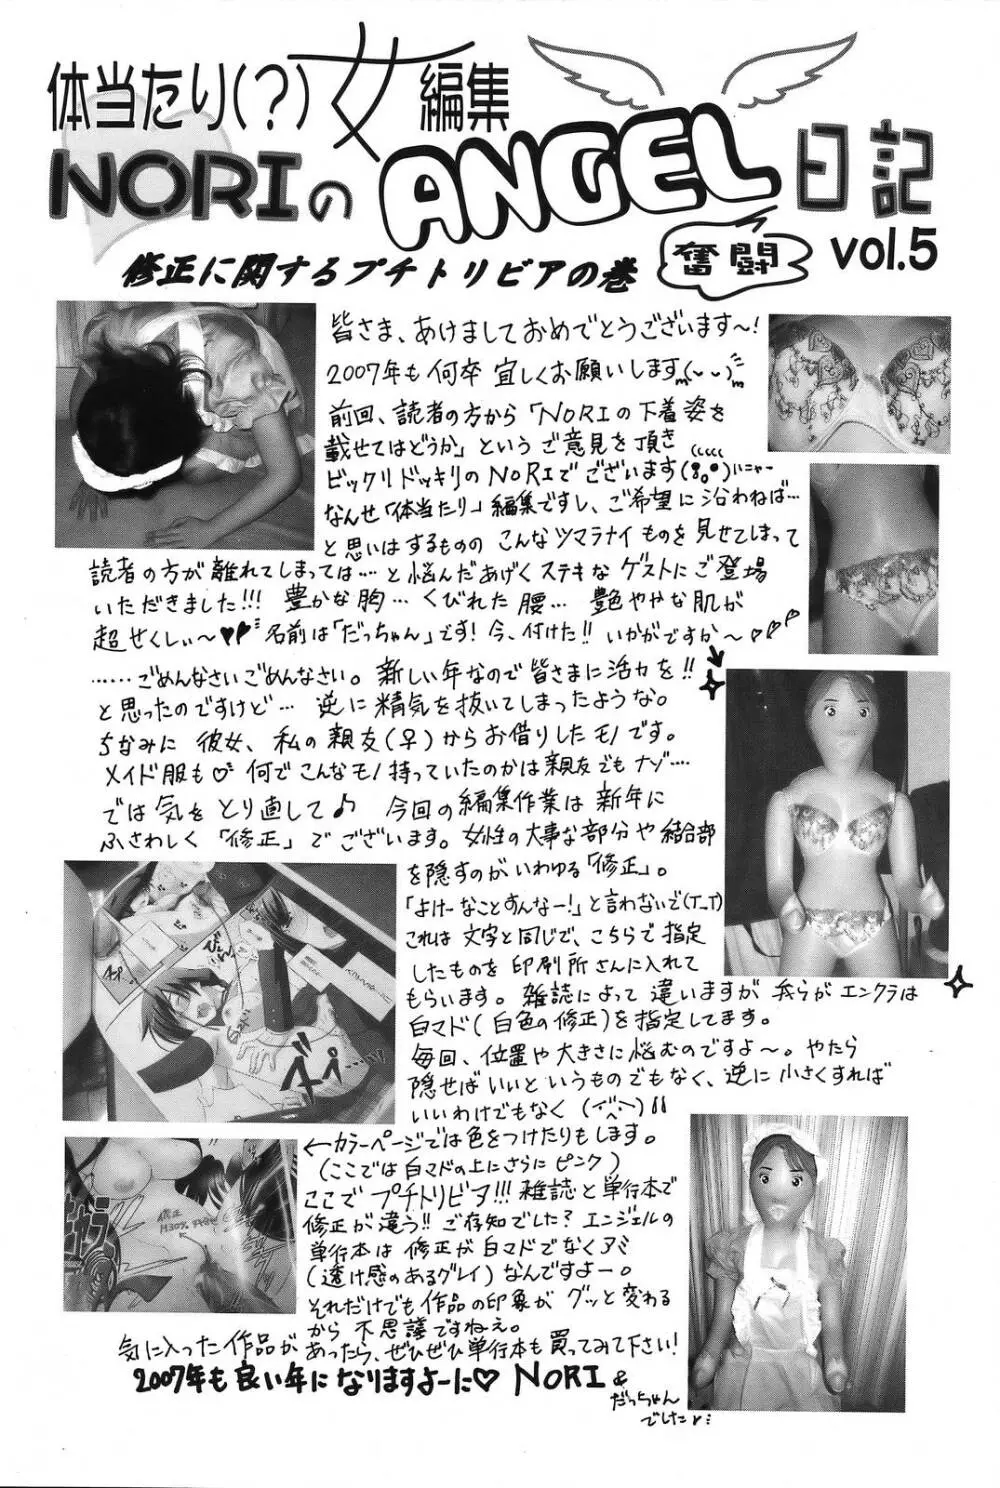 体当たり(?)女編集
NORIのANGEL日記
奮闘
vol.5
修正に関するプチトリビアの巻
皆さま、あけましておめでとうございます〜!
2007年も何卒宜しくお願いしますm(~ ~)m
前回、読者の方から「NORIの下着姿を
載せてはどうか」というご意見を頂き
ビックリドッキリのNORIでございます
なんせ「体当たり」編集ですし、ご希望に沿わねば…
と思いはするものの こんなツマラナイものを見せてしまって
読者の方が離れてしまっては…と悩んだあげくステキなゲストにご登場
いただきました!!! 豊かな胸… くびれた腰… 艶ややな肌が
超せくしぃ〜♡♡ 名前は「だっちゃん」です! 今、付けた!! いかがですか〜♡♡♡
……ごめんなさいごめんなさい。新しい年なので皆さまに活力を!!
と思ったのですけど… 逆に精気を抜いてしまったような。
ちなみに 彼女、私の親友(♀)からお借りしたモノです。
メイド服も♡ 何でこんなモノ持っていたのかは親友でもナゾ…
では気をとり直して♪ 今回の編集作業は新年に
ふさわしく「修正」でございます。女性の大事な部分や結合部
を隠すのがいわゆる「修正」。
「よけーなことすんなー!」と言わないで(T_T)
これは文字と同じで、こちらで指定
したものを印刷所さんに入れて
もらいます。雑誌によって違いますが我らがエンクラは
白マド(白色の修正)を指定してます。
毎回、位置や大きさに悩むのですよ〜。やたら
隠せばいいというものでもなく、逆に小さくすれば
いいわけでもなく
←カラーページでは色をつけたりもします。
(ここでは白マドの上にさらにピンク)
ここでプチトリビア!!! 雑誌と単行本で
修正が違う!! ご存知でした? エンジェルの
単行本は修正が白マドでなくアミ
(透け感のあるグレイ)なんですよー。
それだけでも作品の印象がグッと変わる
から不思議ですねえ。
気に入った作品があったら、ぜひぜひ単行本も買ってみて下さい!
2007年も良い年になりますよーに♡ NORI &
だっちゃん
でした
修正
M30%